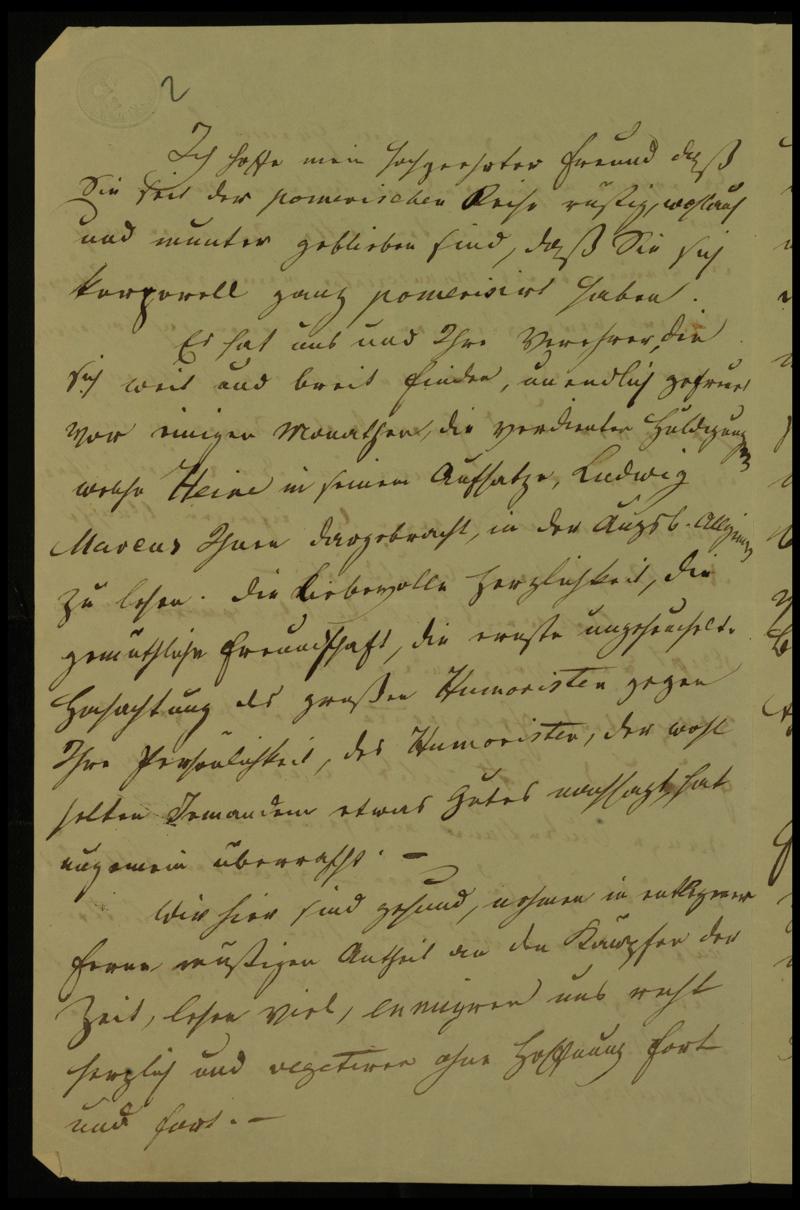 2
Ich hoffe mein hochgeehrter Freund daß
Sie seit der pomerischen Reise rüstig, wohlauf
und munter geblieben sind, daß Sie sich
korporell ganz pomerisirt haben.
Es hat uns und Ihre Verehrer, die
sich weit und breit finden, unendlich gefreut
vor einigen Monathen, die verdienten Huldigungen
welche Heine in seinem Aufsatze, Ludwig
Marcus Ihnen dargebracht, in der Augsb. Allgemein
zu lesen. Die Liebevolle Herzlichkeit, die
gemüthliche Freundschaft, die ernste ungeheuchelte
Hochachtung des großen Humoristen gegen
Ihre Persönlichkeit, des Humoristen, der wohl
selten Jemandem etwas Gutes nachsagt, hat
ungemein überrascht. –
Wir hier sind gesund, nehmen in entlegener
Ferne müßigen Antheil an den Kämpfen der
Zeit, lesen viel, ennuyren uns recht
herzlich und vegetiren ohne Hoffnung fort
und fort. –